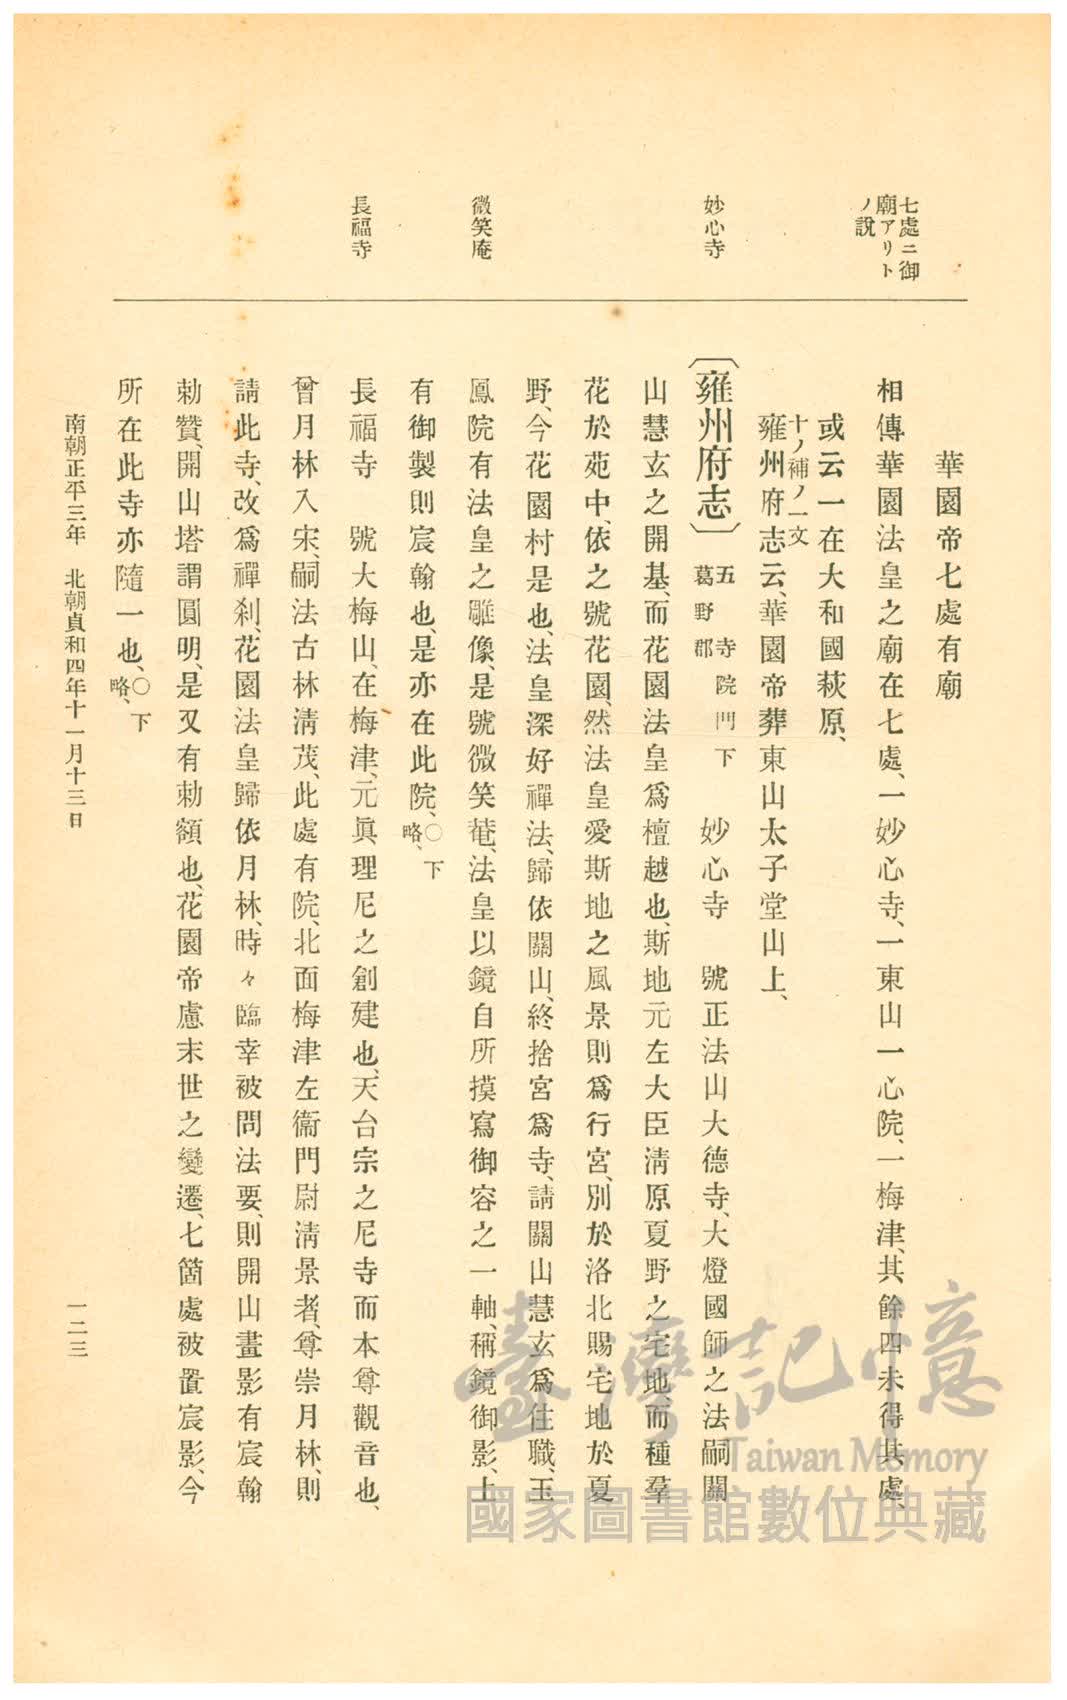 七處ニ御
廟アリト
ノ說
妙心寺
微笑庵
長福寺
華園帝七處有廟
相傳華園法皇之廟在七處、一妙心寺、一東山一心院、一梅津、其餘四未得其處、
或云一在大和國萩原、
十ノ補ノ一文
雍州府志云、華園帝葬東山太子堂山上、
〔雍州府志〕五 寺院門下 葛野郡 妙心寺 號正法山大德寺、大燈國師之法嗣關
山慧玄之開基、而花園法皇爲檀越也、斯地元左大臣淸原夏野之宅地、而種羣
花於苑中、依之號花園、然法皇愛斯地之風景則爲行宮、別於洛北賜宅地於夏
野、今花園村是也、法皇深好禪法、歸依關山、終捨宮爲寺、請關山慧玄爲住職、玉
鳳院有法皇之雕像、是號微笑菴、法皇以鏡自所摸寫御容之一軸、稱鏡御影、上
有御製則宸翰也、是亦在此院、〇下略、
長福寺 號大梅山、在梅津、元眞理尼之創建也、天台宗之尼寺而本尊觀音也、
曾月林入宋、嗣法古林淸茂、此處有院、北面梅津左衞門尉淸景者、尊崇月林、則
請此寺、改爲禪刹、花園法皇歸依月林、時々臨幸被問法要、則開山畫影有宸翰
勅贊、開山塔謂圓明、是又有勅額也、花園帝慮末世之變遷、七箇處被置宸影、今
所在此寺亦隨一也、〇下略、
南朝正平三年 北朝貞和四年十一月十三日
一二三
臺灣記憶
Taiwan Memory
國家圖書館數位典藏